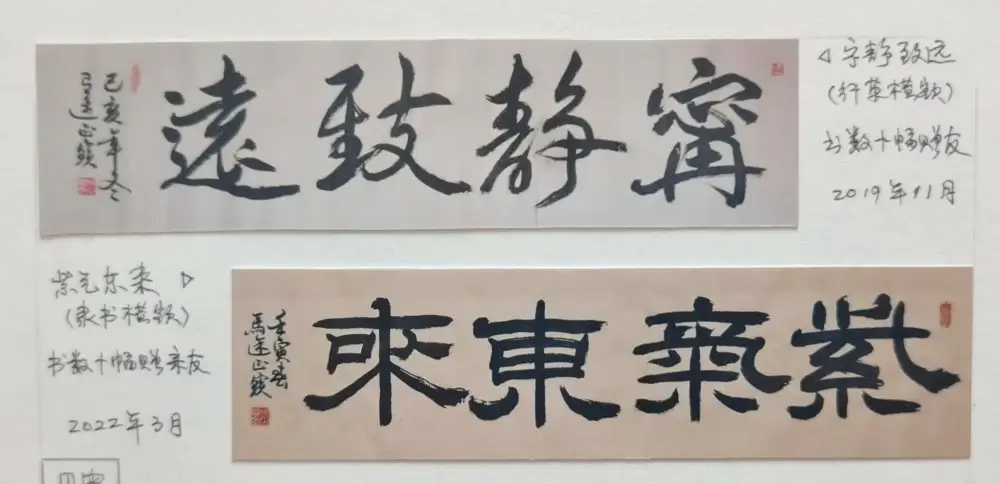 甯靜致遠
己亥年冬
宁静致远
(行草横额)
书数十幅赠友
2019年11月
紫气东来
(隶书横额)
书数十幅赠亲友
2022年3月
紫氣東來
壬寅春